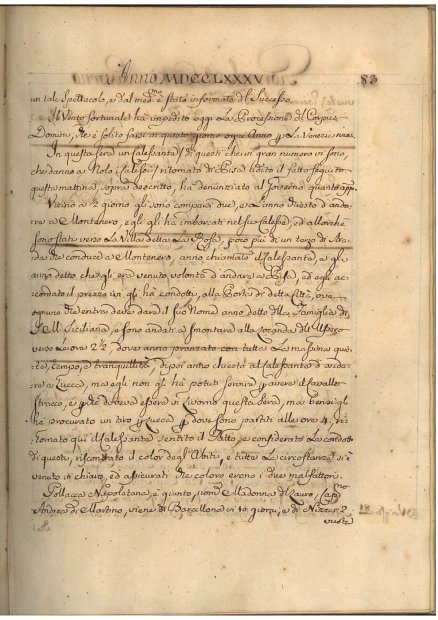 Anno MDCCLXXXV 83
un tale Spettacolo, e dal med.mo è stata informata del Successo.
Il Vento fortunale ha impedito oggi La Processione del Corpus
Domini, che è solito farsi in questo giorno ogni Anno
In questa sera un Calessante / di questi che in gran numero vi sono,
che danno a Nolo i Calessi / ritornato di Pisa udito il fatto seguito
questa mattina, sopra descritto, ha denunziato al Governo quanto app.o
Vicino a ½ giorno gli sono comparsi due, e L'anno chiesto d'anda-
re a Montenero, egli gli ha imbarcati nel suo Calesse, ed allorchè
sono stati verso La Villa detta La Rosa, poco più di un terzo di Stra-
da che conduce a Montenero, anno chiamato il Calessante, e gli
anno detto che gli era venuta volontà d'andare a Pisa, ed egli ac-
cordato il prezzo vi gli ha condotti, alla Porta di detta Città, ove
ognuno che entra deve dare il suo Nome anno detto della Famiglia di
S. M. Siciliana, e sono andati a smontare alla Locanda dell'Ussero
verso Le ore 2½, dove anno pranzato con tutta La massima quie-
te, tempo, e tranquillità, di poi anno chiesto al Calessante d'anda-
re a Lucca, ma egli non gli ha potuti servire p avere il Cavallo
stracco, e p che doveva essere in Livorno questa sera, ma bensì gli
ha procurato un tiro p Lucca p dove sono partiti alle ore 4, ri-
tornato qui il Calessante sentito il Fatto, e considerato La condotta
di questi, riscontrato il color degl'Abiti, e tutte Le circostanze si è
venuto in chiaro, ed assicurati che coloro erono i due malfattori.
Pollacca Napoletana, è giunta, nom.a Madonna di Lauro, Cap.no
Andrea di Martino, viene di Barcellona in 10 giorni, e di Nizza in 2
vuota